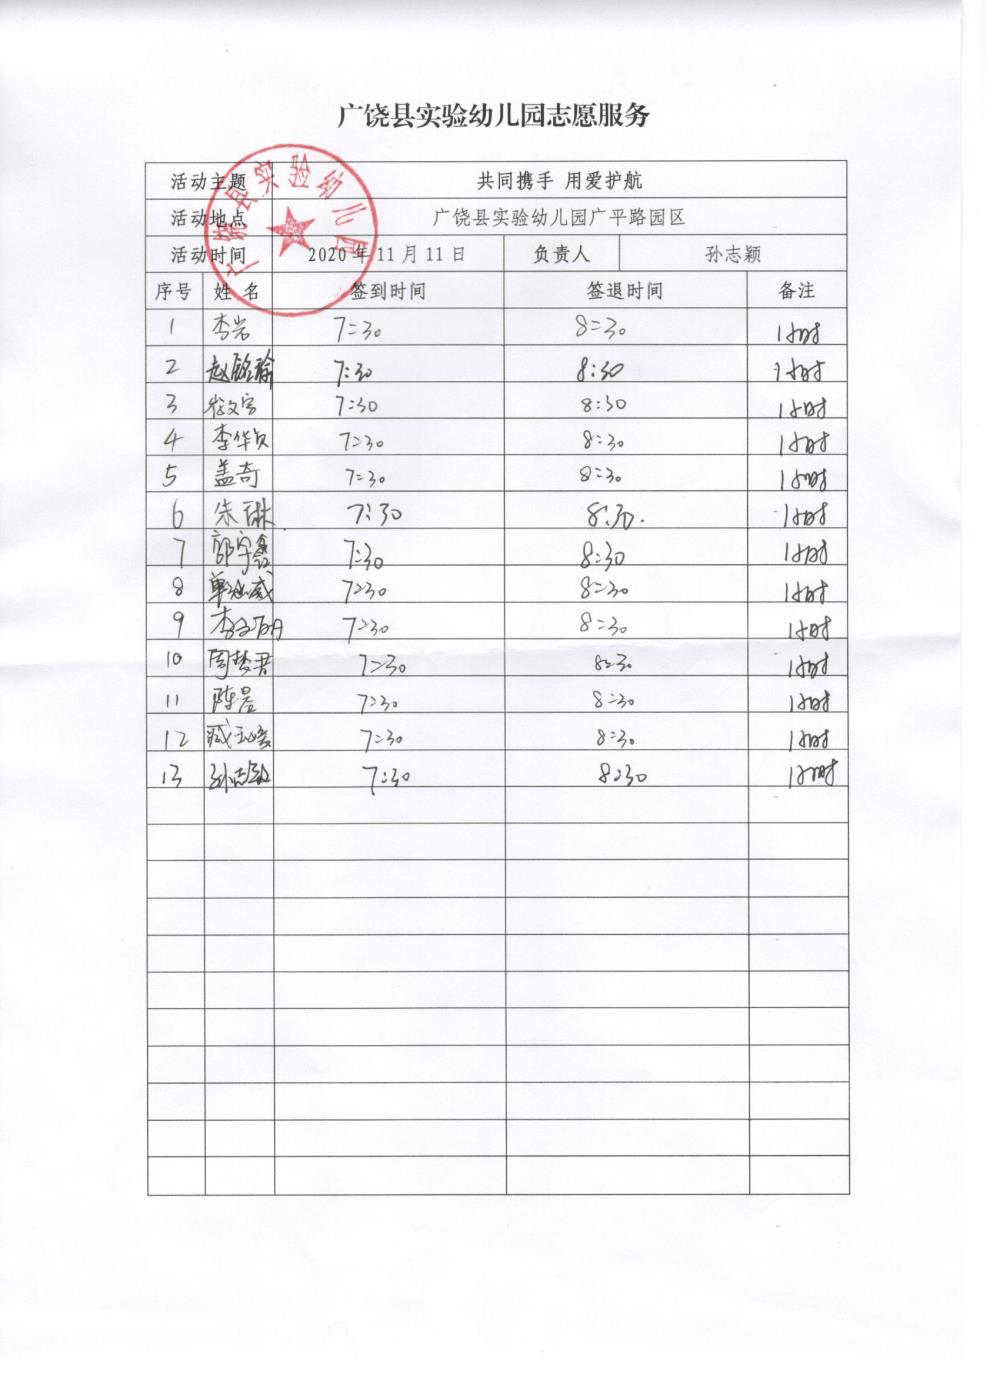 广饶县实验幼儿园志愿服务
活动主题 共同携手 用爱护航
活动地点 广饶县实验幼儿园广平路园区
活动时间 2020年11月11日 负责人 孙志颖
序号 姓 名 签到时间 签退时间 备注
1 李岩 7:30 8:30 1小时
2 赵铭瑜 7:30 8:30 1小时
3 7:30 8:30 1小时
4 李华贞 7:30 8:30 1小时
5 盖奇 7:30 8:30 1小时
6 朱琳 7:30 8:30. 1小时
7 郭宇鑫 7:30 8:30 1小时
8 7:30 8:30 1小时
9 7:30 8:30 1小时
10 周梦君 7:30 8:30 1小时
11 陈晨 7:30 8:30 1小时
12 7:30 8:30 1小时
13 7:30 8:30 1小时
广饶县实验幼儿园